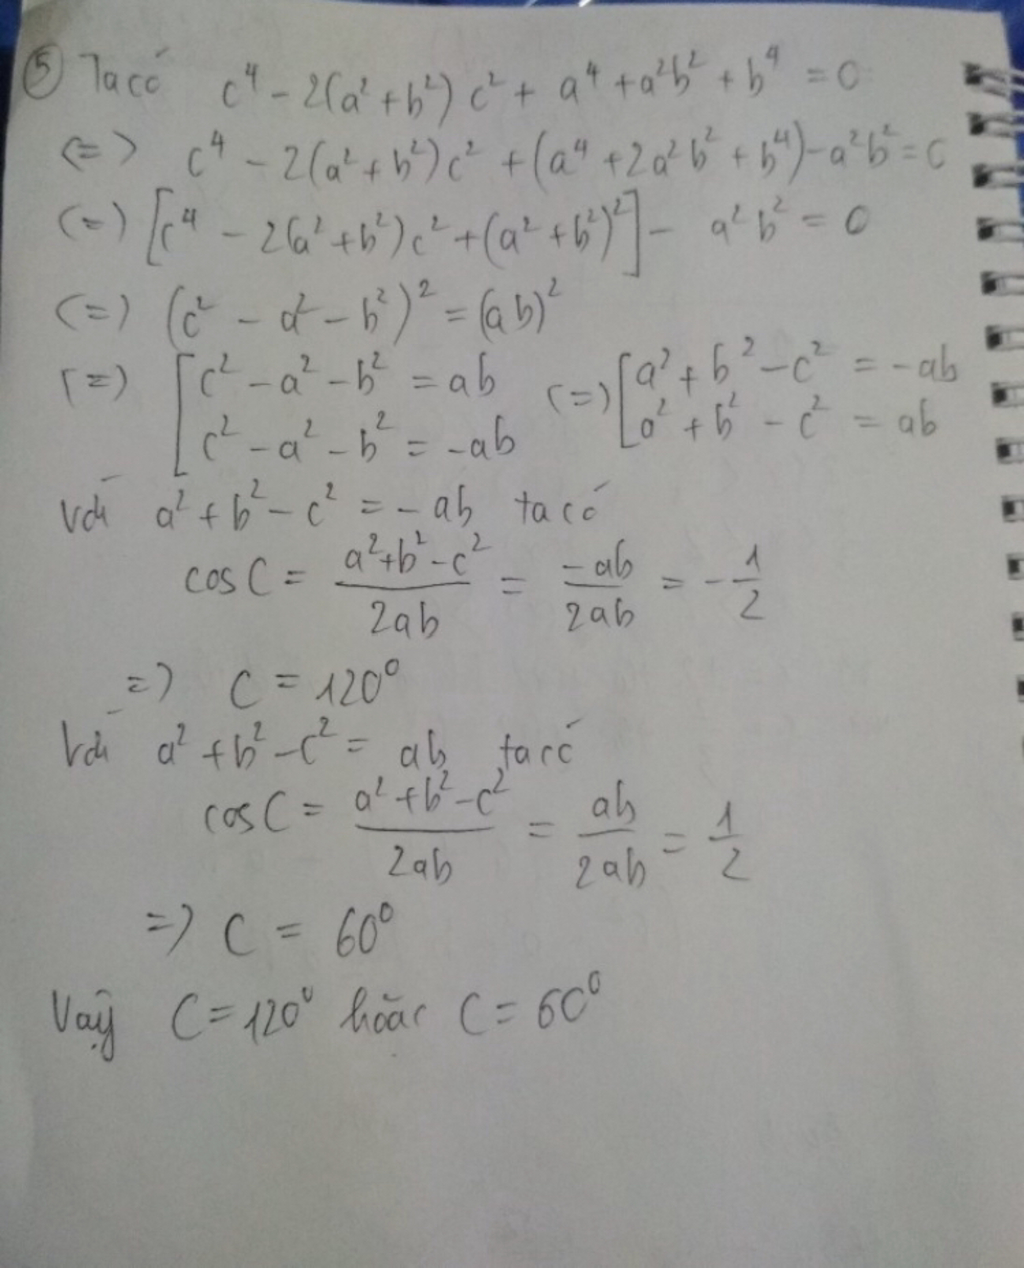 ⑤ Ta có c⁴ - 2(a² + b²) c² + a⁴ + a²b² + b⁴ = 0
<=> c⁴ - 2(a² + b²)c² + (a⁴ + 2a²b² + b⁴) - a²b² = 0
<=> [c⁴ - 2(a² + b²)c² + (a² + b²)²] - a²b² = 0
<=> (c² - a² - b²)² = (ab)²
<=> [c² - a² - b² = ab <=> [a² + b² - c² = -ab
c² - a² - b² = -ab a² + b² - c² = ab
Với a² + b² - c² = -ab ta có
cos C = (a² + b² - c²)/2ab = -ab/2ab = -1/2
=> C = 120⁰
Với a² + b² - c² = ab ta có
cos C = (a² + b² - c²)/2ab = ab/2ab = 1/2
=> C = 60⁰
Vậy C = 120⁰ hoặc C = 60⁰